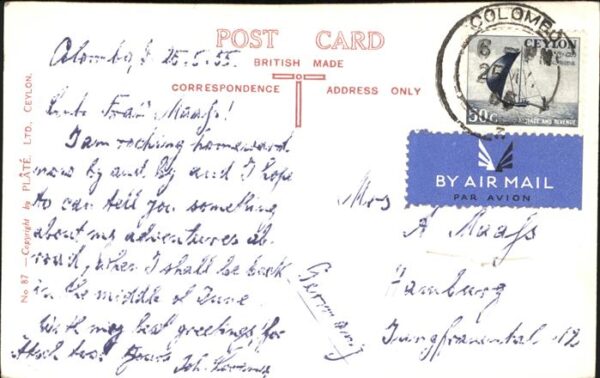 POST CARD
BRITISH MADE
CORRESPONDENCE ADDRESS ONLY
No 87 — Copyright by PLÂTÉ, LTD., CEYLON.
Colombo, 25.5.55.
Frau Maass!
I am homeward
now by and by and I hope
to can tell you something
about my adventures ab-
road, when I shall be back
in the middle of June
with my best greetings, for
too! Yours Joh.
COLOMBO
6 PM
25
55
CEYLON
30C
POSTAGE AND REVENUE
BY AIR MAIL
PAR AVION
Mrs
A Maass
Hamburg
Jungfrauental 12
Germany